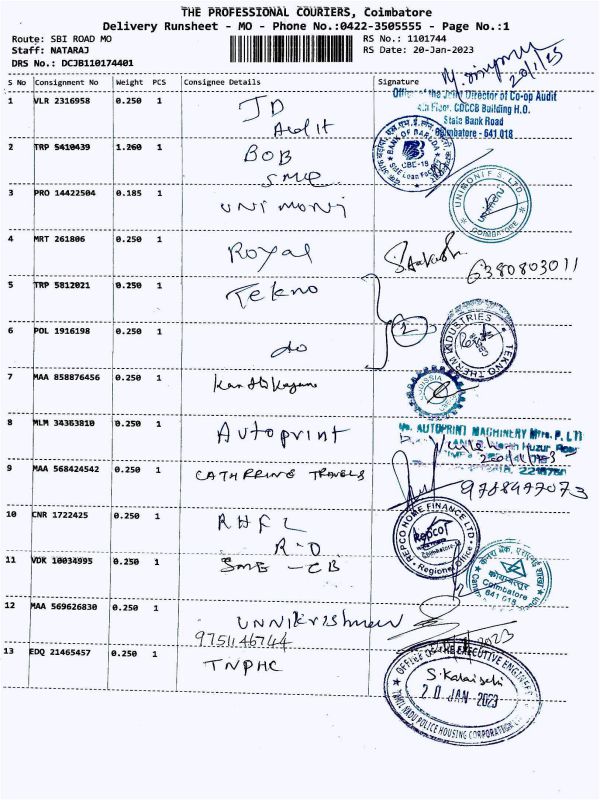 THE PROFESSIONAL COURIERS, Coimbatore
Delivery Runsheet - MO - Phone No.:0422-3505555 - Page No.:1
Route: SBI ROAD MO
RS No.: 1101744
Staff: NATARAJ
RS Date: 20-Jan-2023
DRS No.: DCJB110174401
S No Consignment No Weight PCS Consignee Details Signature
20/1/23
Office of the Joint Director of Co-op Audit
4th Floor, CDCCB Building H.O.
State Bank Road
Coimbatore - 641 018
1 VLR 2316958 0.250 1 JD
Audit
2 TRP 5410439 1.260 1 BOB
SME
BANK OF BARODA
CBE-18
SME Loan Factory
3 PRO 14422504 0.185 1 UNIMONI
COIMBATORE
4 MRT 261806 0.250 1 Royal
6380803011
5 TRP 5812021 0.250 1 Tekno
TEKNO THERM INDUSTRIES
6 POL 1916198 0.250 1 do
7 MAA 858876456 0.250 1
8 MLM 34363810 0.250 1 Autoprint
AUTOPRINT MACHINERY Mfrs. P. LTD
9 MAA 568424542 0.250 1 CATHRRINE TRAVELS
9788477073
10 CNR 1722425 0.250 1 RHFL
R-O
REPCO HOME FINANCE LTD
Repco
Coimbatore
Regional Office
11 VDK 10034995 0.250 1 SME - CB
कोयम्बत्तूर
Coimbatore
641 018
12 MAA 569626830 0.250 1 UNNIkrishnan
9751146744
13 EDQ 21465457 0.250 1 TNPHC
OFFICE OF THE EXECUTIVE ENGINEER
S. Kalaiselvi
20 JAN 2023
TAMIL NADU POLICE HOUSING CORPORATION LTD